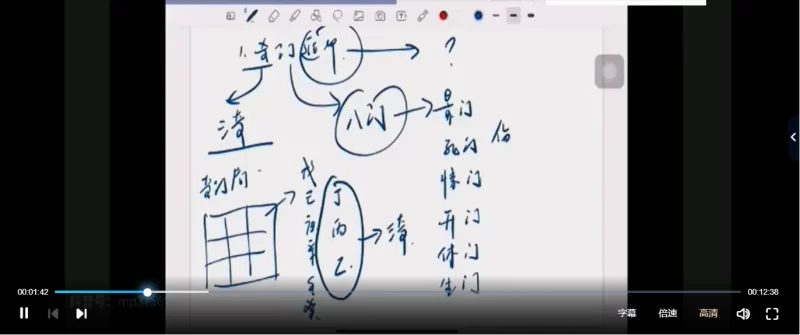 1. 奇门遁甲 → ?
三奇
八门 → 景门
死门 伤
惊门
开门
休门
生门
奇门局
戊
己
庚
辛
壬
癸
丁
丙
乙
→ 三奇
00:01:42
00:12:38
字幕
倍速
高清